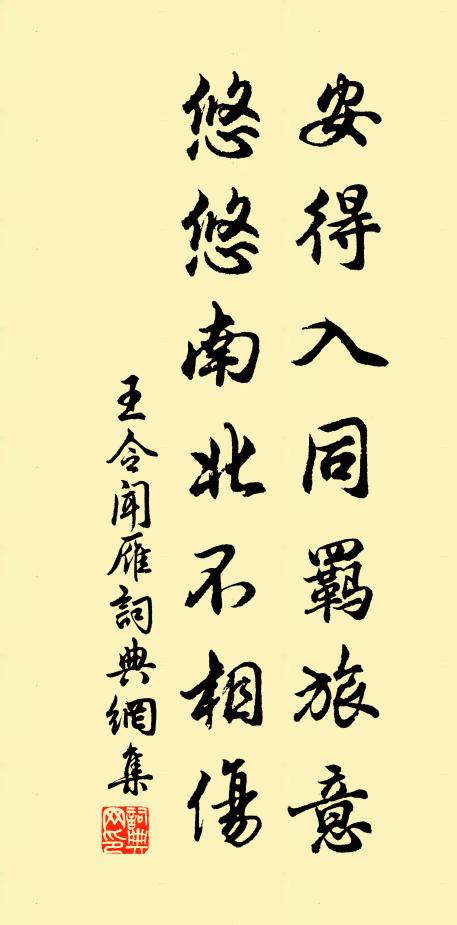 安得入同羈旅意
悠悠南北不相傷
王令聞雁詞典網集
詞典网印